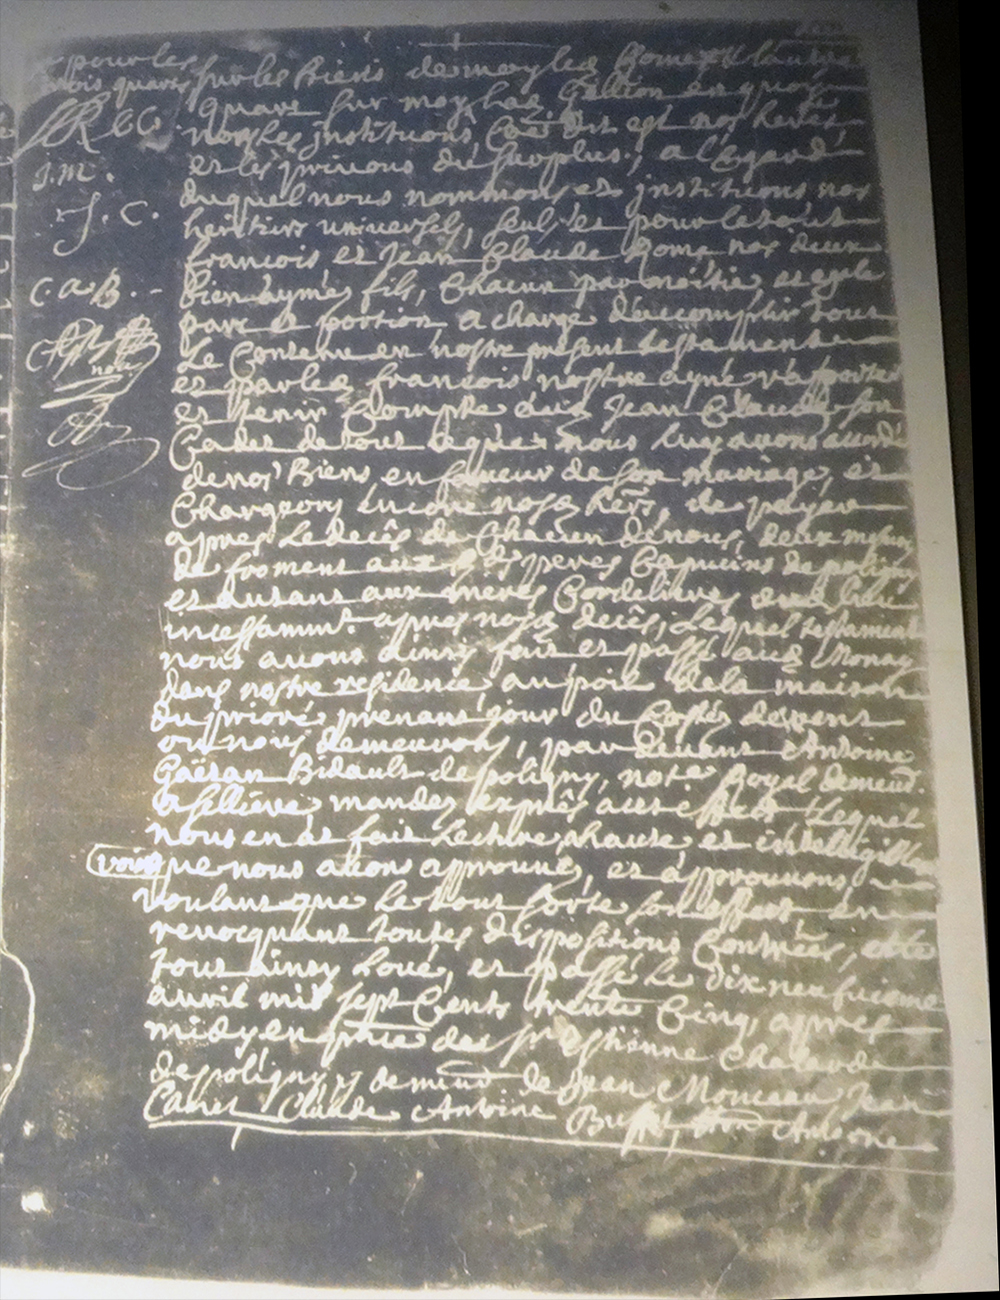 pour les
trois quarts sur les biens de moy led Gome et l'autre
quart sur moy lad Gillion en quoy
nous les instituons Coe dit est nos heres,
et les privons du surplus, a l'Egard
duquel nous nommons et instituons nos
J. C.
heritiers universels, seuls et pour le tout
francois et Jean Claude Gome nos deux
bien aymés fils, Chacun par moitié, et egale
C. a. B.
part et portion, a charge d'accomplir tout
Le Contenu en nostre present testament
et par led francois nostre ayné rapporter
et tenir Compte aud Jean Claude son
Cadet de tout ce que nous luy avons accordé
de nos Biens en faveur de son mariage, et
Chargeons encore nosd hers, de payer
apres Le decès de Chacun de nous, deux mesures
de froment aux Rds peres Capucins de poligny
et autant aux meres Cordelieres
incessammt apres nosd decès, Lequel testament
nous avons ainsy fait et passé aud Monay
dans nostre residence, au poile de la maison
du prioré prenant jour du Costé devent
ou nous demeurons, par devant Antoine
Gaëtan Bidault de poligny, note Royal demeurt
a Sellière mandez exprès a cet effect Lequel
nous en at fait Lecture, a haute et intelligible
voix que nous avons approuvé, et approuvons
voulant que le tout sorte son effect, en
revocquant toutes dispositions Contrées,
tout ainsy Loué, et passé Le dix neufvieme
avril mil sept Cents trente Cinq, apres
midy en pnce des sr Estienne Chalard
de poligny y demeurt de Jean Monceau Jean
Canet Claude Antoine Buffet, Antoine